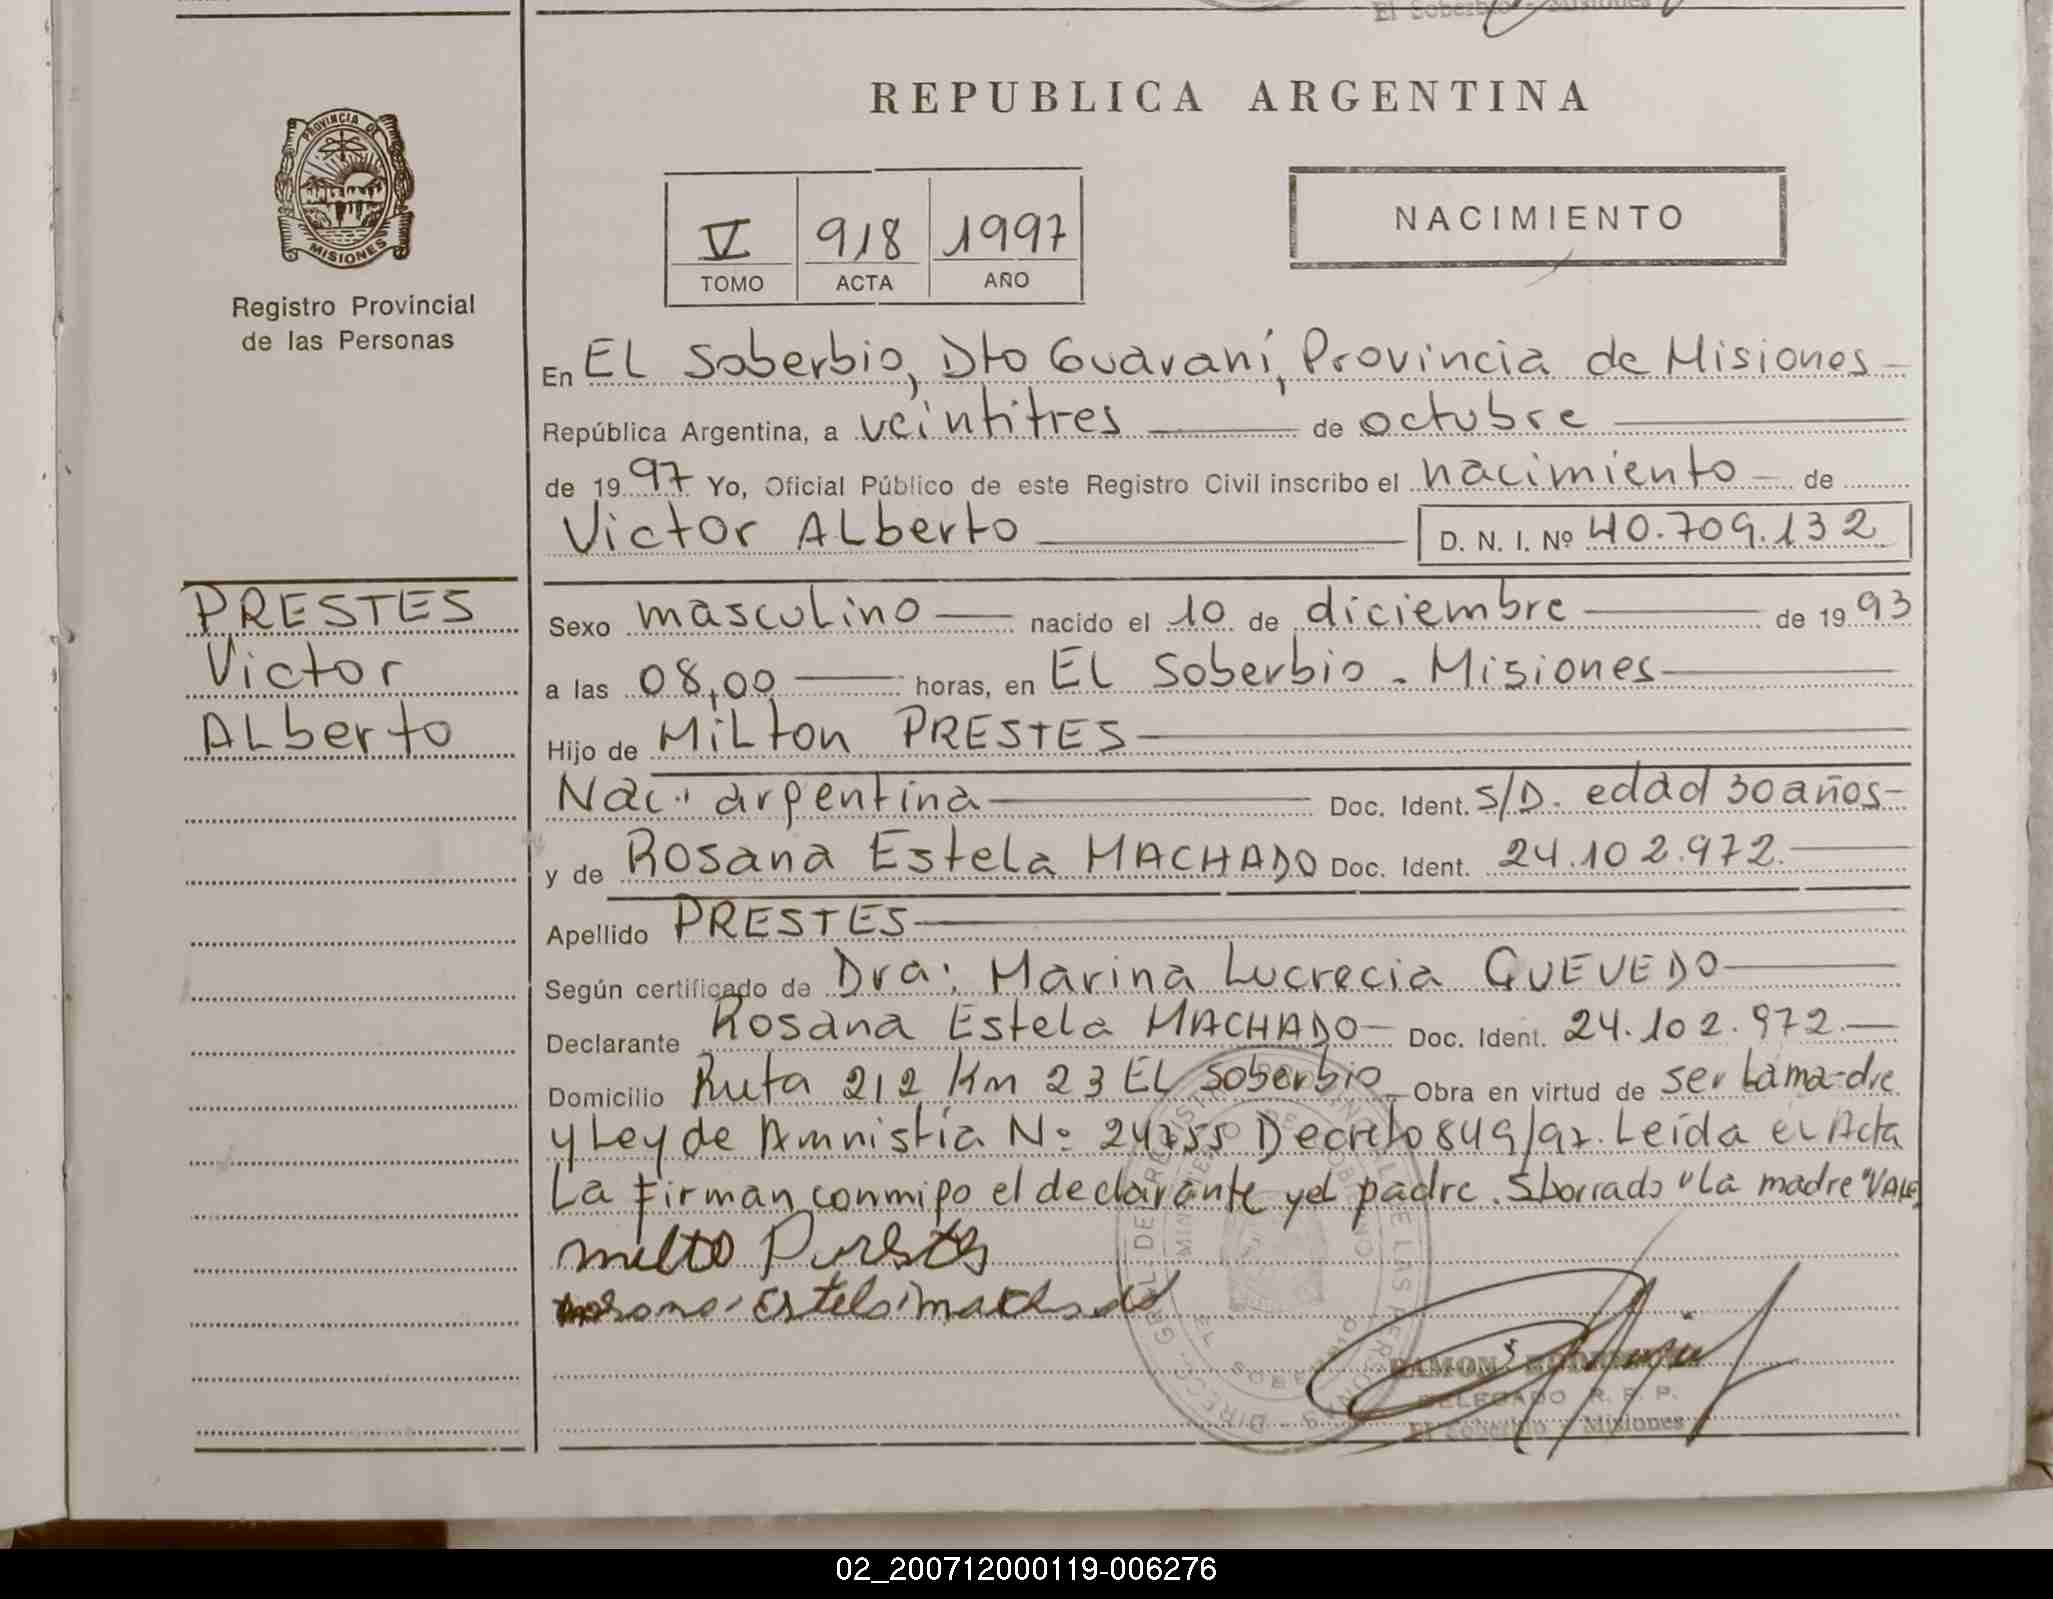 El Soberbio - Misiones
REPUBLICA ARGENTINA
PROVINCIA DE
MISIONES
Registro Provincial
de las Personas
V 918 1997
TOMO ACTA AÑO
NACIMIENTO
En EL Soberbio, Dto Guaraní, Provincia de Misiones
República Argentina, a veintitres de octubre
de 1997 Yo, Oficial Público de este Registro Civil inscribo el nacimiento de
Victor ALberto D. N. I. Nº 40.709.132
PRESTES
Victor
ALberto
Sexo masculino nacido el 10 de diciembre de 1993
a las 08,00 horas, en EL Soberbio - Misiones
Hijo de MiLton PRESTES
Nac. argentina Doc. Ident. S/D. edad 30 años
y de Rosana Estela MACHADO Doc. Ident. 24.102.972.
Apellido PRESTES
Según certificado de Dra: Marina Lucrecia QUEVEDO
Declarante Rosana Estela MACHADO Doc. Ident. 24.102.972.
Domicilio Ruta 212 Km 23 EL Soberbio Obra en virtud de ser La ma-dre
y Ley de Amnistía Nº 24755 Decreto 849/97. Leída el Acta
La firman conmigo el declarante y el padre. S borrado "La madre" VALE
milto Prestes
Estela machado
DIRECC. GRAL. DE REGISTRO PROVINCIAL DE LAS PERSONAS
RAMON
DELEGADO R. P. P.
El Soberbio - Misiones
02_200712000119-006276